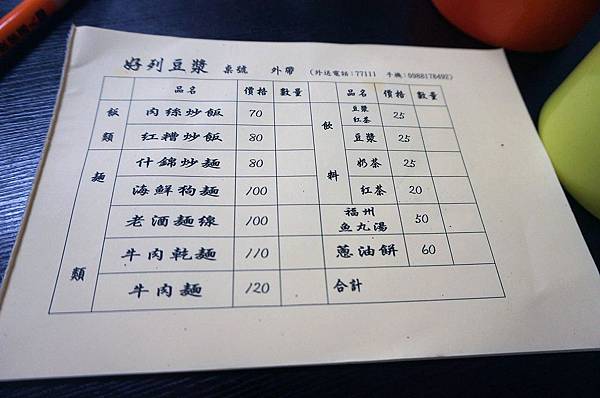 好列豆漿 桌號 外帶 (外送電話:77111 手機:0988176492)
品名 價格 數量 品名 價格 數量
飯類 肉絲炒飯 70
紅糟炒飯 80
麵類 什錦炒麵 80
海鮮狗麵 100
老酒麵線 100
牛肉乾麵 110
牛肉麵 120
飲料 豆漿
紅茶 25
豆漿 25
奶茶 25
紅茶 20
福州
魚丸湯 50
蔥油餅 60
合計